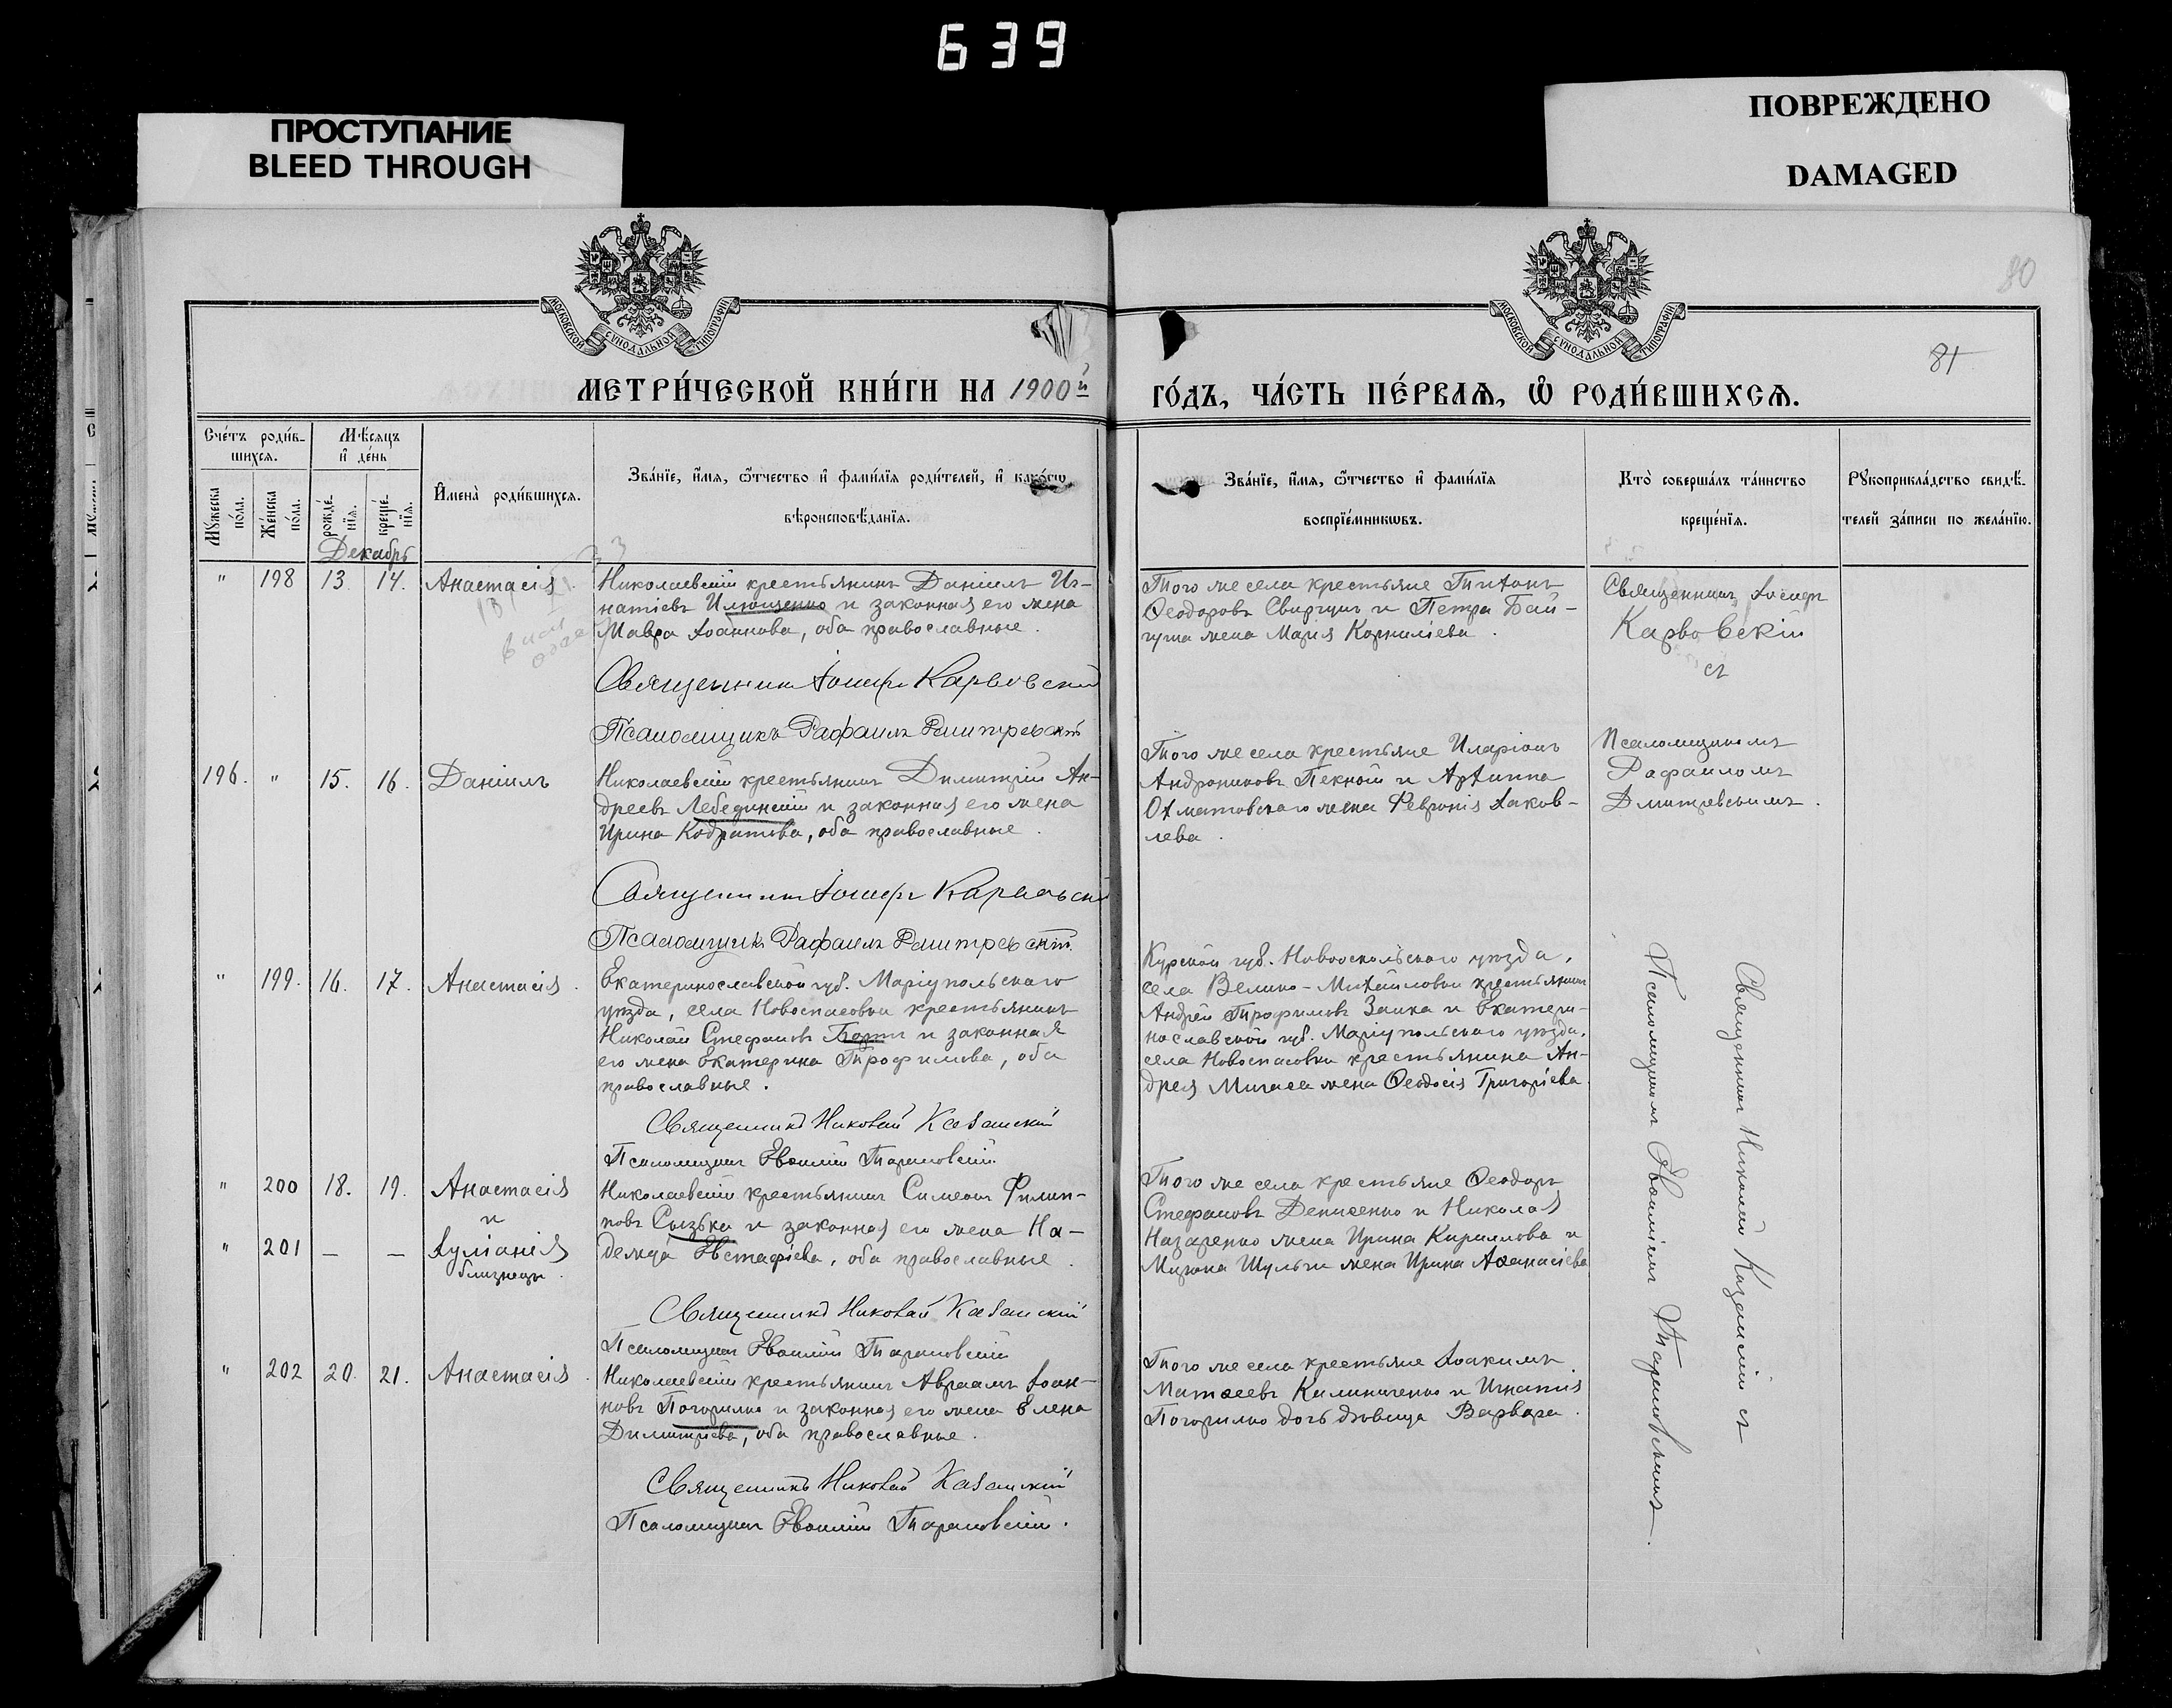 639
ПРОСТУПАНИЕ
BLEED THROUGH
ПОВРЕЖДЕНО
DAMAGED
МОСКОВСКОЙ СУНОДАЛЬНОЙ ТИПОГРАФІИ
МОСКОВСКОЙ СУНОДАЛЬНОЙ ТИПОГРАФІИ
80
81
МЕТРИ́ЧЕСКОЙ КНИ́ГИ НА 1900й
ГО́ДЪ, ЧА́СТЬ ПЕ́РВАѦ, Ѡ҆ РОДИ́ВШИХСѦ.
Сче́тъ роди́в-
шихсѧ.
Мѣ́сяцъ
и҆ де́нь
Мꙋжеска
по́ла.
Же́нска
по́ла.
рожде́-
нїѧ.
креще́-
нїѧ.
Декабрь
И҆мена̀ роди́вшихсѧ.
Зва́нїе, и҆́мѧ, ѻ҆́тчество и҆ фами́лїѧ роди́телей, и҆ како́гѡ
вѣроисповѣ́данїѧ.
Зва́нїе, и҆́мѧ, ѻ҆́тчество и҆ фами́лїѧ
воспрїе́мникѡвъ.
Кто̀ соверша́лъ та́инство
креще́нїѧ.
Рꙋкоприкла́дство свидѣ́-
телей за́писи по жела́нїю.
" 198 13. 14. Анастасія.
Николаевскій крестьянинъ Даніилъ Иг-
натіевъ Илющенко и законная его жена
Мавра Іоаннова, оба православные.
Священникъ Іосифъ Карвовскій
Псаломщикъ Рафаилъ Дмитревскій
Того же села крестьяне Титонъ
Ѳеодоровъ Свиргунъ и Петра Бай-
гуша жена Марія Корниліева.
Священникъ Іосифъ
Карвовскій
съ
Псаломщикомъ
Рафаиломъ
Дмитревскимъ.
196. " 15. 16. Даніилъ
Николаевскій крестьянинъ Димитрій Ан-
дреевъ Лебединскій и законная его жена
Ирина Кодратова, оба православные.
Священникъ Іосифъ Карвовскій
Псаломщикъ Рафаилъ Дмитревскій.
Того же села крестьяне Иларіонъ
Андрониковъ Пекной и Архиппа
Охматовскаго жена Февронія Іаков-
лева.
" 199. 16. 17. Анастасія.
Екатеринославской губ. Маріупольскаго
уѣзда, села Новоспасовки крестьянинъ
Николай Стефановъ и законная
его жена Екатерина Трофимова, оба
православные.
Священникъ Николай Казанскій
Псаломщикъ Евѳимій Тарановскій.
Курской губ. Новооскольскаго уѣзда,
села Велико-Михайловки крестьянинъ
Андрей Трофимовъ Заика и Екатери-
нославской губ. Маріупольскаго уѣзда,
села Новоспасовки крестьянина Ан-
дрея жена Ѳеодосія Григоріева.
Священникъ Николай Казанскій съ
Псаломщикомъ Евѳиміемъ Тарановскимъ.
" 200 18. 19. Анастасія
и
" 201 — — Іуліанія
близнецы.
Николаевскій крестьянинъ Симеонъ Филип-
повъ Сызька и законная его жена На-
дежда Евстафіева, оба православные.
Священникъ Николай Казанскій
Псаломщикъ Евѳимій Тарановскій
Того же села крестьяне Ѳеодоръ
Стефановъ Денисенко и Николая
Назаренко жена Ирина Кириллова и
Мирона Шульги жена Ирина Аѳанасіева
" 202 20. 21. Анастасія.
Николаевскій крестьянинъ Авраамъ Іоан-
новъ Погорилко и законная его жена Елена
Димитріева, оба православные.
Священникъ Николай Казанскій
Псаломщикъ Евѳимій Тарановскій.
Того же села крестьяне Іоакимъ
Матѳеевъ Калиниченко и Игнатія
Погорилко дочь дѣвица Варвара.